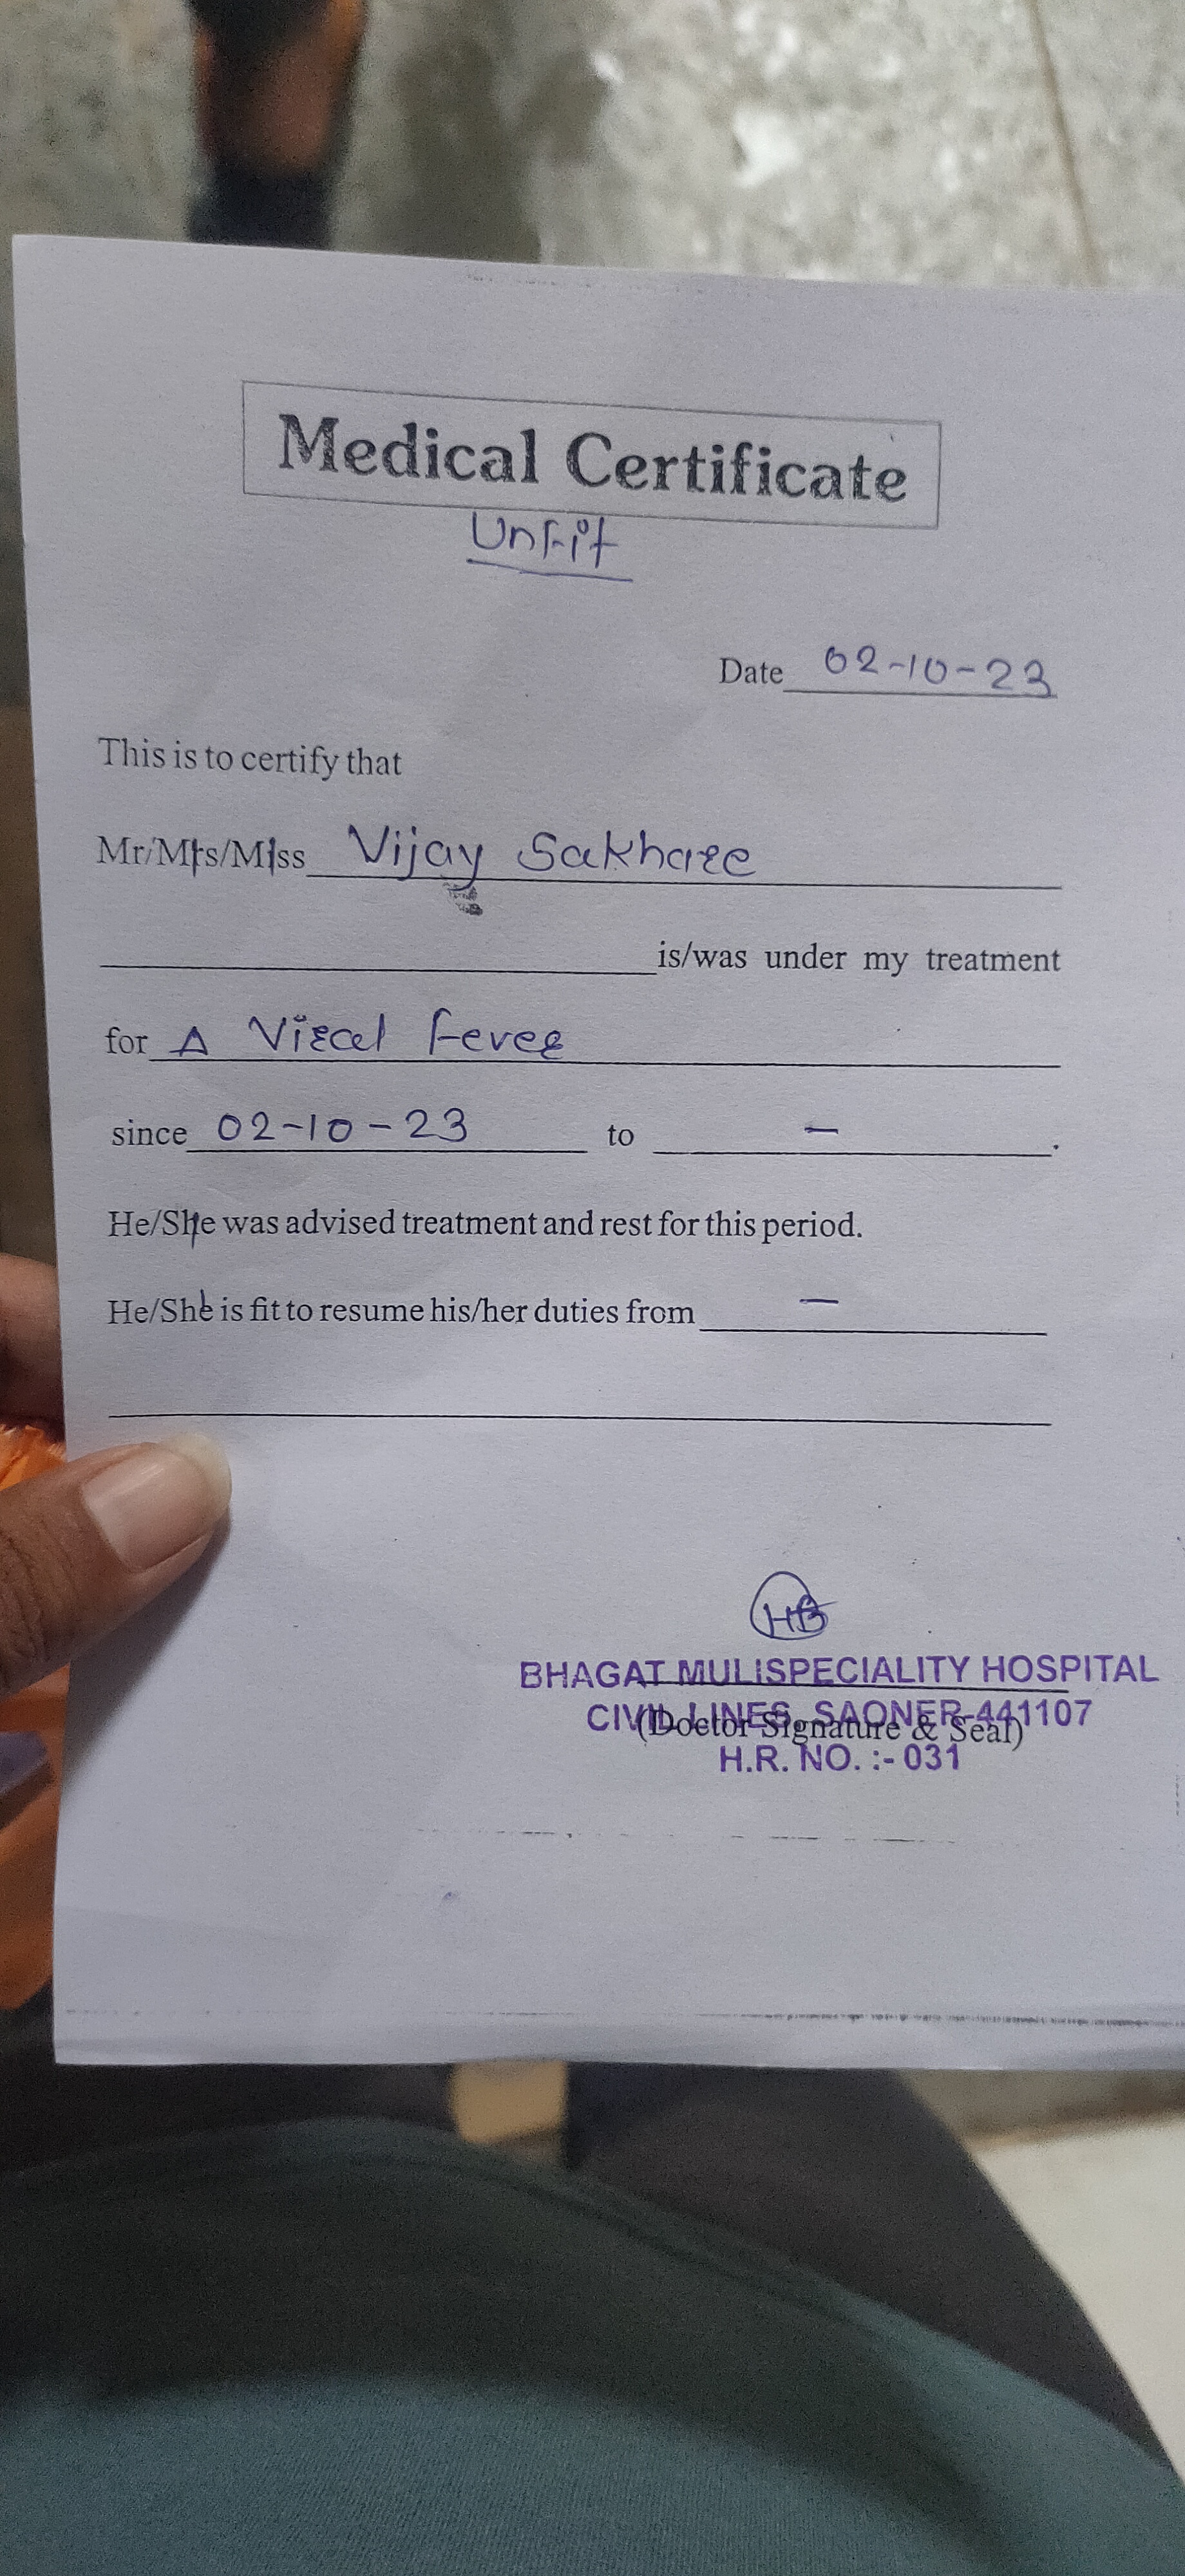 Medical Certificate
Unfit
Date 02-10-23
This is to certify that
Mr/Mrs/Miss Vijay Sakhare
is/was under my treatment
for Δ Viral fever
since 02-10-23 to - .
He/She was advised treatment and rest for this period.
He/She is fit to resume his/her duties from -
HB
BHAGAT MULISPECIALITY HOSPITAL
CIVIL LINES, SAONER-441107
(Doctor Signature & Seal)
H.R. NO. :- 031